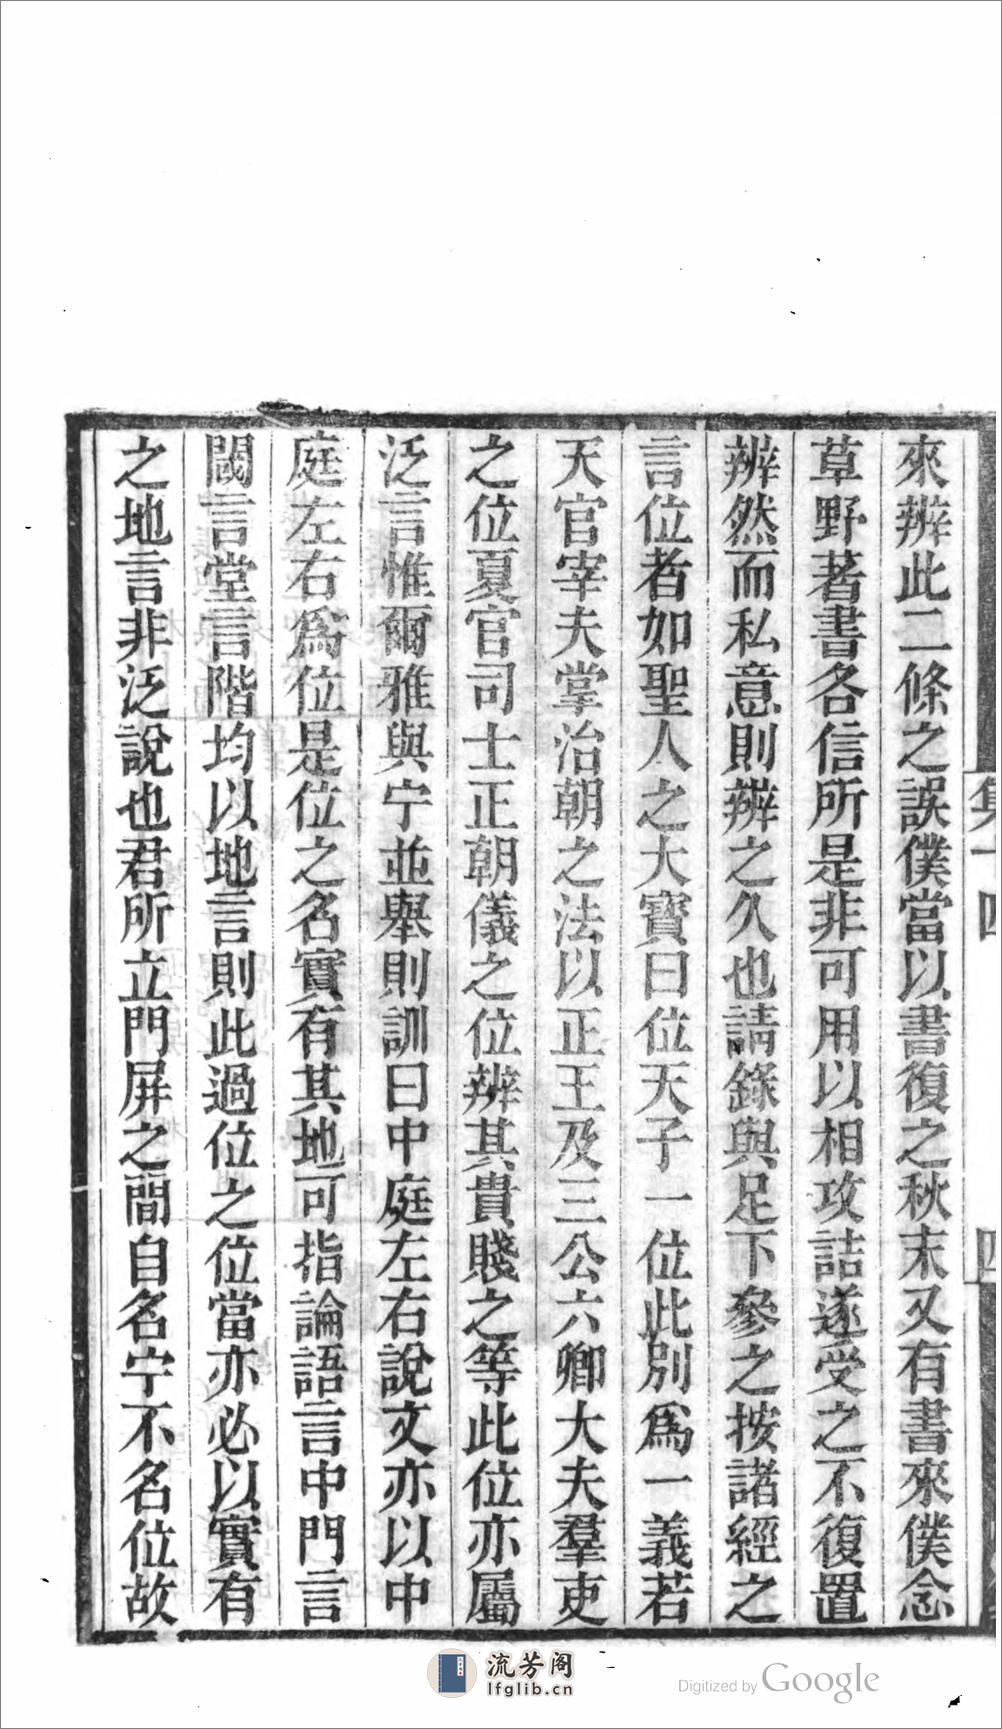 來辨此二條之誤僕當以書復之秋末又有書來僕念
草野著書各信所是非可用以相攻詰遂受之不復置
辨然而私意則辨之久也請錄與足下參之按諸經之
言位者如聖人之大寶曰位天子一位此別爲一義若
天官宰夫掌治朝之法以正王及三公六卿大夫羣吏
之位夏官司士正朝儀之位辨其貴賤之等此位亦屬
泛言惟爾雅與宁並舉則訓曰中庭左右說文亦以中
庭左右爲位是位之名實有其地可指論語言中門言
閾言堂言階均以地言則此過位之位當亦必以實有
之地言非泛說也君所立門屏之間自名宁不名位故
集十四
四
流芳阁
lfglib.cn
Digitized by Google